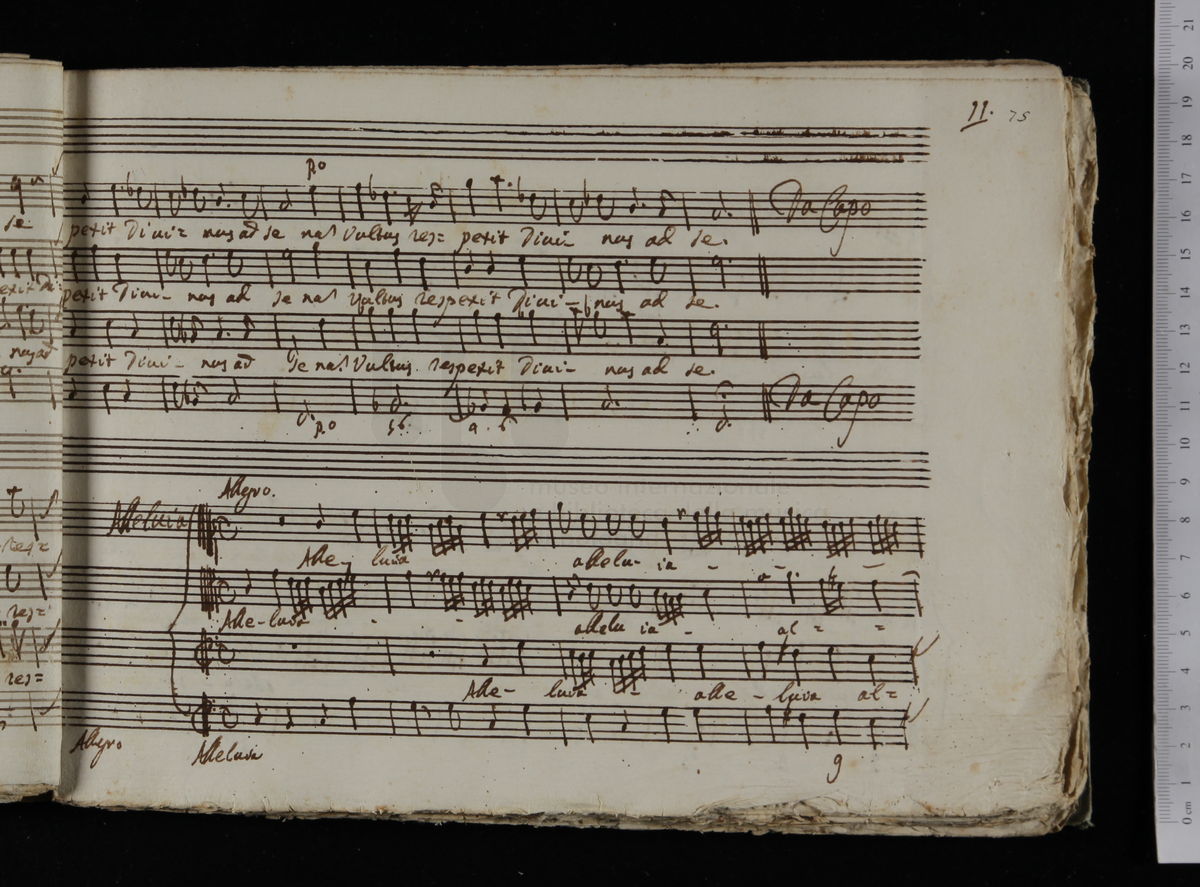 11. 75
po
Da Capo
se petit Divi= nus ad se na? Vultus res= petit Divi- nus ad se.
petit Divi- nus ad se na? Vultus respexit Divi- nus ad se.
nus ad petit Divi- nus ad se na? Vultus respexit Divi- nus ad se.
Da Capo
po 56 9 6
Allegro.
Alleluia
res= Alle- luia allelu- ia - - -
res= Alle-luia - - allelu ia - al= =
res= Alle- luia - alle- luia al=
Allegro Alleluia 9
museo internazionale
0 cm 1 2 3 4 5 6 7 8 9 10 11 12 13 14 15 16 17 18 19 20 21